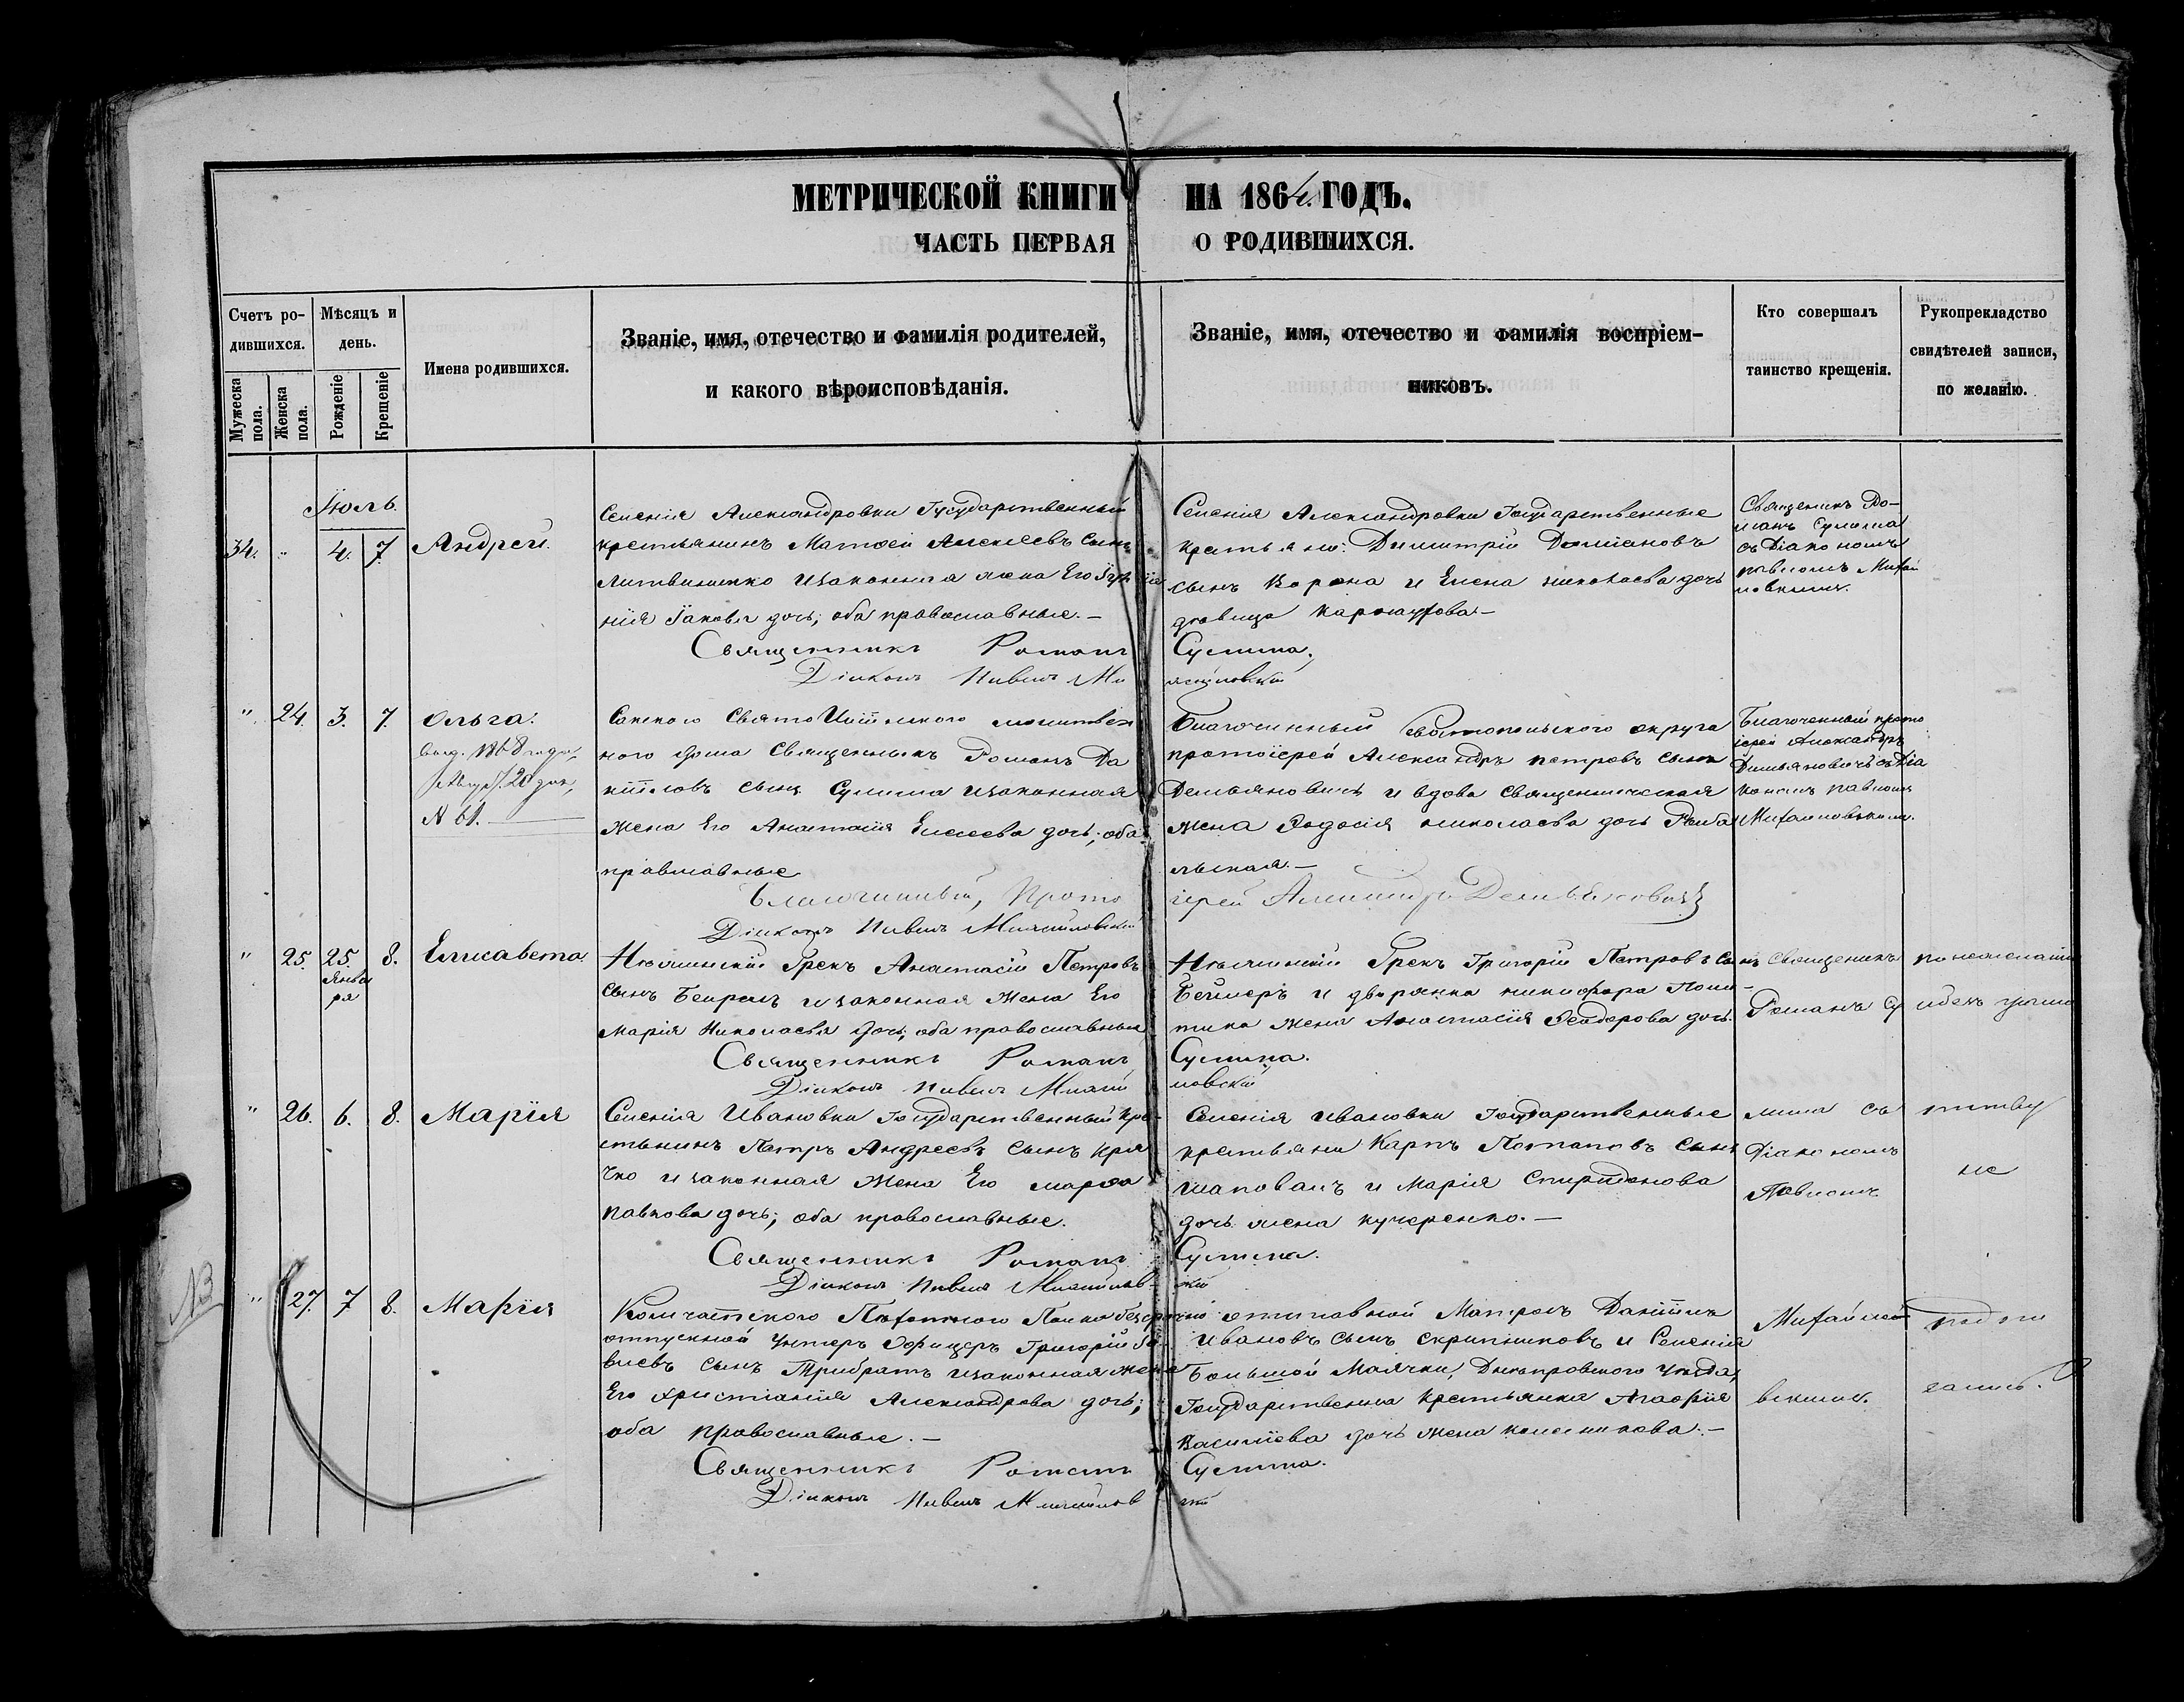 МЕТРИЧЕСКОЙ КНИГИ НА 1864. ГОДЪ.
ЧАСТЬ ПЕРВАЯ О РОДИВШИХСЯ.
Счетъ ро-
дившихся.
Мужеска
пола.
Женска
пола.
Мѣсяцъ и
день.
Рожденіе
Крещеніе
Имена родившихся.
Званіе, имя, отечество и фамилія родителей,
и какого вѣроисповѣданія.
Званіе, имя, отечество и фамилія воспріем-
никовъ.
Кто совершалъ
таинство крещенія.
Рукоприкладство
свидѣтелей записи,
по желанію.
Іюль.
34. " 4. 7. Андрей.
Селенія Александровки Государственный
крестьянинъ Матвей Алексеевъ сынъ
Литвиненко и законная жена Его
нія Іаковл дочь; оба православные.—
Священникъ Романъ Сулима.
Діаконъ Павелъ
Селенія Александровки Государственные
крестьяни: Димитрій Даміановъ
сынъ Ворона и Елена николаева дочь
девица
Священникъ Ро-
манъ Сулима
съ Діакономъ
павломъ Михай
ловскимъ.
" 24. 3. 7. Ольга.
выд. 1868 года,
Авгус. 20 дня,
N 61.
ного дома Священникъ Романъ Да
ниловъ сынъ Сулима и законная
жена Его Анастасія Елисеева дочь; оба
православные
Благочинный, Прото іерей Александръ Демьяновичъ
Діаконъ Павелъ Михайловскій
Благочинный округа
протоіерей Александръ петровъ сынъ
Демьяновичъ и вдова священническая
жена Феодосія николаева дочь
льская.—
Благочинный прото
іерей Александръ
Демьяновичъ съ Діа
кономъ павломъ
Михайловскимъ.
" 25. 25. Января 8. Елисавета
Нѣжинскій Грекъ Анастасій Петровъ
сынъ и законная жена Его
Марія Николаева дочь; оба православные
Священникъ Романъ Сулима.
Діаконъ Павелъ Михай ловскій
Нѣжинскій Грекъ Григорій Петровъ сынъ
и дворянка никифора Поли-
тика жена Анастасія Феодорова дочь.
Священникъ
Романъ Су
по желанію
" 26. 6. 8. Марія
Селенія Ивановки Государственный кре-
стьянинъ Петръ Андреевъ сынъ Кря
чко и законная жена Его марфа
павлова дочь; оба православные.
Священникъ Романъ Сулима.
Діаконъ Павелъ Михайловскій
Селенія Ивановки Государственные
крестьяни Карпъ Потаповъ сынъ
шаповалъ и Марія Спиридонова
дочь жена кучеренко.—
лима съ
Діакономъ
Павломъ
не
NB
" 27. 7 8. Марія
Камчатского Пехотного Полка безсрочно
отпускной Унтеръ Офицеръ Григорій
сынъ Трибратъ и законная жена
Его христіанія Александрова дочь;
оба православные.—
Священникъ Романъ Сулима.
Діаконъ Павелъ Михайловскій
отставной Матросъ Даніилъ
Ивановъ сынъ скрипниковъ и Селенія
Большой Маячки, Днепровского Уезда,
Государственная крестьянка Агафія
Василіева дочь жена колесникова.—
Михайло
вскимъ.
запись.